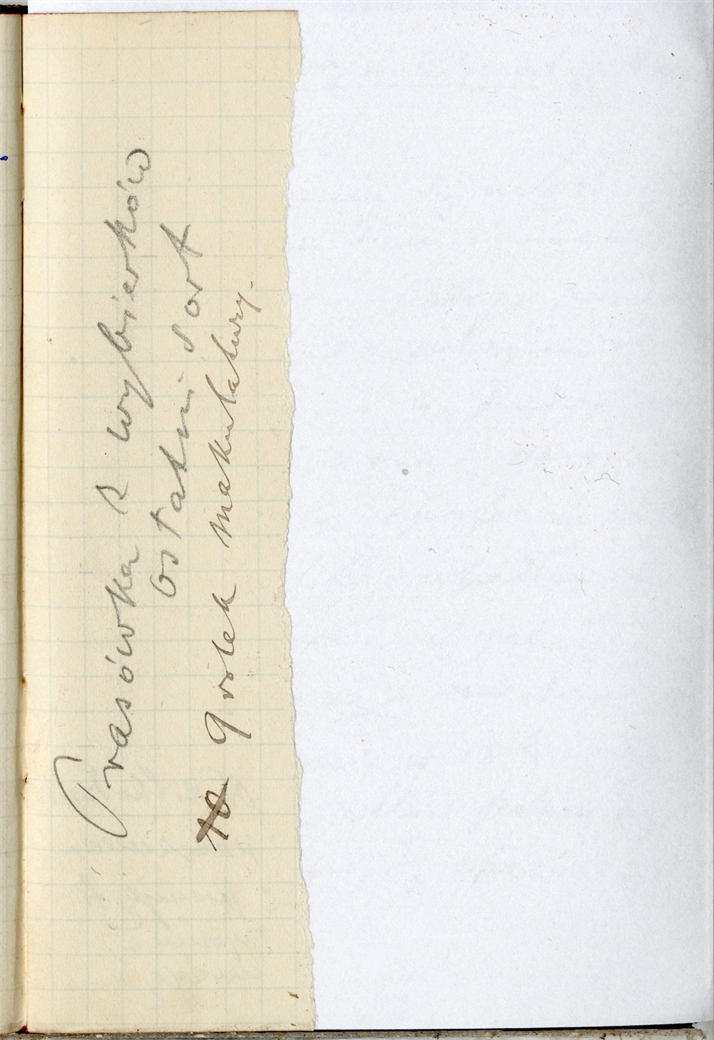 Prasówka z wybierków
ostatni sort
10 9 rolek makulatury.